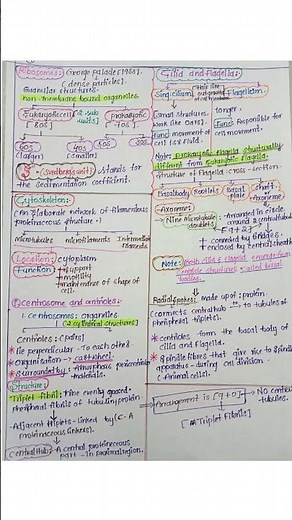 Ribosomes: George palade [1953].
(dense particles).
Granular structures.
non-membrane bound organelles.
Eukaryotic cell [2 sub units] prokaryotic
[80S] -70S-
60S 40S 50S 30S
(larger) (smaller)
S (Svedberg's unit) stands for
the sedimentation coefficient.
Cytoskeleton:
(An Elaborate network of filamentous
proteinaceous structure.)
microtubules microfilaments Intermediate
filaments
Location: cytoplasm
Function: support
motility
maintenance of shape of
cell.
Centrosome and centrioles:
1. Centrosomes: organelles
(2 cylindrical structures)
Centrioles: (pairs)
lie perpendicular - To each other
organisation -> cartwheel
Surrounded by Amorphous pericentriolar
materials.
Structure:
Triplet fibril: nine evenly spaced
peripheral fibrils of tubulin protein
Adjacent triplets - linked by (C-A
proteinaceous linkers).
Central Hub: A central proteinaceous
part - in proximal region.
Cilia and flagella:
hair like
outgrowths
of cell membrane
Sing: cilium Flagellum.
Small structures longer.
work like oars).
Func: movement of Func: Responsible for
cell (or) fluid. cell movement.
Note: prokaryotic flagella structurally
different from Eukaryotic flagella.
Structure of Flagella: cross-section.
Basal body Rootlets Basal shaft
plate Axoneme
Axoneme:
(Nine microtubule -> Arranged in circle
doublets) around 2 central tubule
[9+2]
connected by bridges
enclosed by central sheath
Note: Both cilia & flagella emerge from
centriole structures called basal
bodies.
Radial spokes: made up of protein.
(connects central hub -> to tubules of
peripheral triplets).
centrioles form the basal body of
cilia and Flagella.
Spindle fibres that give rise to spindle
apparatus - during cell division -
(Animal cells).
Arrangement is [9+0] -> No central
tubules.
[Triplet Fibrils]